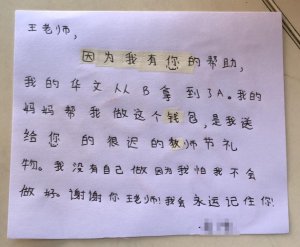 王老师，
因为我有您的帮助，
我的华文从B拿到了A。我的
妈妈帮我做这个钱包，是我送
给您的很迟的教师节礼
物。我没有自己做因为我怕我不会
做好。谢谢你王老师！我会永远记住你！